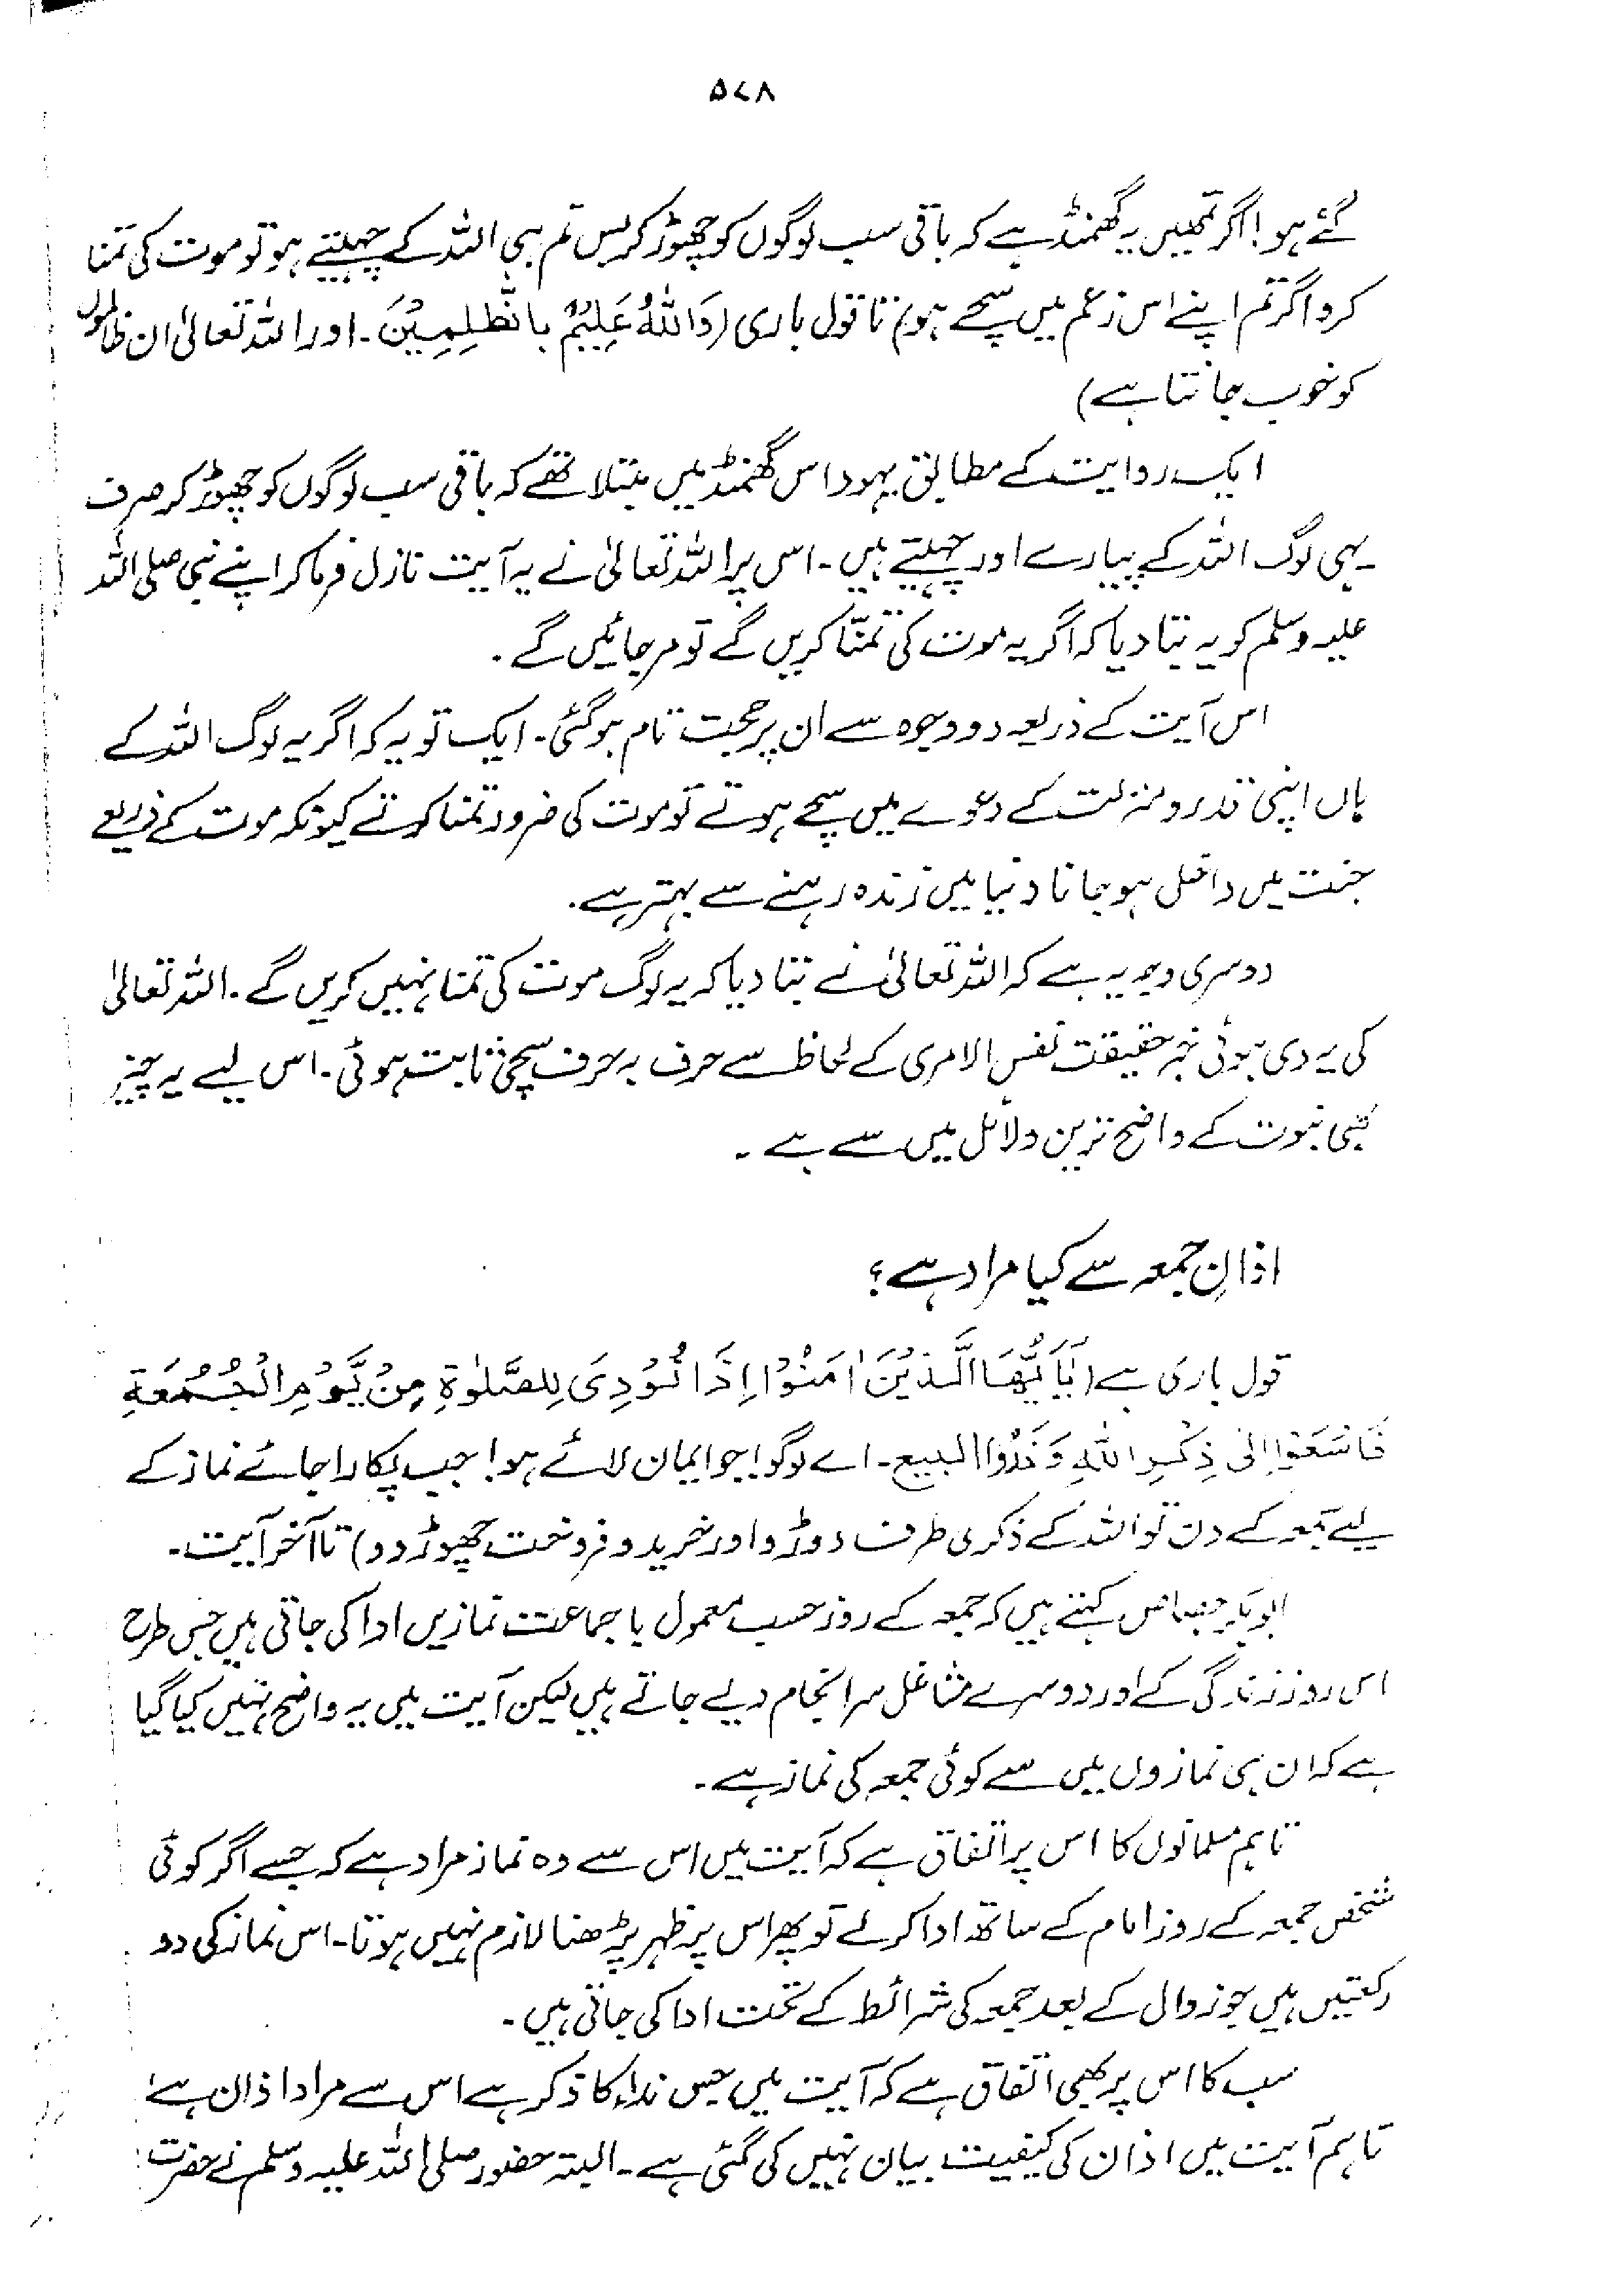 ۵۷۸
گئے ہو! اگر تمہیں یہ گھمنڈ ہے کہ باقی سب لوگوں کو چھوڑ کر بس تم ہی اللہ کے چہیتے ہو تو موت کی تمنا
کرو اگر تم اپنے اس زعم میں سچے ہو) تا قول باری (وَاللّٰهُ عَلِيْمٌ بِالظّٰلِمِيْنَ۔ اور اللہ تعالیٰ ان ظالموں
کو خوب جانتا ہے)
ایک روایت کے مطابق یہود اس گھمنڈ میں مبتلا تھے کہ باقی سب لوگوں کو چھوڑ کر صرف
یہی لوگ اللہ کے پیارے اور چہیتے ہیں۔ اس پر اللہ تعالیٰ نے یہ آیت نازل فرما کر اپنے نبی صلی اللہ
علیہ وسلم کو یہ بتا دیا کہ اگر یہ موت کی تمنّا کریں گے تو مر جائیں گے۔
اس آیت کے ذریعہ دو وجوہ سے ان پر حجت تام ہو گئی۔ ایک تو یہ کہ اگر یہ لوگ اللہ کے
ہاں اپنی قدر و منزلت کے دعوے میں سچے ہوتے تو موت کی ضرور تمنا کرتے کیونکہ موت کے ذریعے
جنت میں داخل ہو جانا دنیا میں زندہ رہنے سے بہتر ہے۔
دوسری وجہ یہ ہے کہ اللہ تعالیٰ نے بتا دیا کہ یہ لوگ موت کی تمنا نہیں کریں گے۔ اللہ تعالیٰ
کی یہ دی ہوئی خبر حقیقت نفس الامری کے لحاظ سے حرف بہ حرف سچی ثابت ہوئی۔ اس لیے یہ چیز
بھی نبوت کے واضح ترین دلائل میں سے ہے۔
اذانِ جمعہ سے کیا مراد ہے؟
قول باری ہے (يٰٓاَيُّهَا الَّذِيْنَ اٰمَنُوْا اِذَا نُوْدِىَ لِلصَّلٰوةِ مِنْ يَّوْمِ الْجُمُعَةِ
فَاسْعَوْا اِلٰى ذِكْرِ اللّٰهِ وَذَرُوا البيع۔ اے لوگو! جو ایمان لائے ہو! جب پکارا جائے نماز کے
لیے جمعہ کے دن تو اللہ کے ذکر کی طرف دوڑو اور خرید و فروخت چھوڑ دو) تا آخر آیت۔
ابو بکر جصاص کہتے ہیں کہ جمعہ کے روز حسب معمول با جماعت نمازیں ادا کی جاتی ہیں جس طرح
اس روز زندگی کے اور دوسرے مشاغل سر انجام دیے جاتے ہیں لیکن آیت میں یہ واضح نہیں کیا گیا
ہے کہ ان ہی نمازوں میں سے کوئی جمعہ کی نماز ہے۔
تاہم مسلمانوں کا اس پر اتفاق ہے کہ آیت میں اس سے وہ نماز مراد ہے کہ جسے اگر کوئی
شخص جمعہ کے روز امام کے ساتھ ادا کر لے تو پھر اس پر ظہر پڑھنا لازم نہیں ہوتا۔ اس نماز کی دو
رکعتیں ہیں جو زوال کے بعد جمعہ کی شرائط کے تحت ادا کی جاتی ہیں۔
سب کا اس پر بھی اتفاق ہے کہ آیت میں جس نداء کا ذکر ہے اس سے مراد اذان ہے
تاہم آیت میں اذان کی کیفیت بیان نہیں کی گئی ہے۔ البتہ حضور صلی اللہ علیہ وسلم نے حضرت